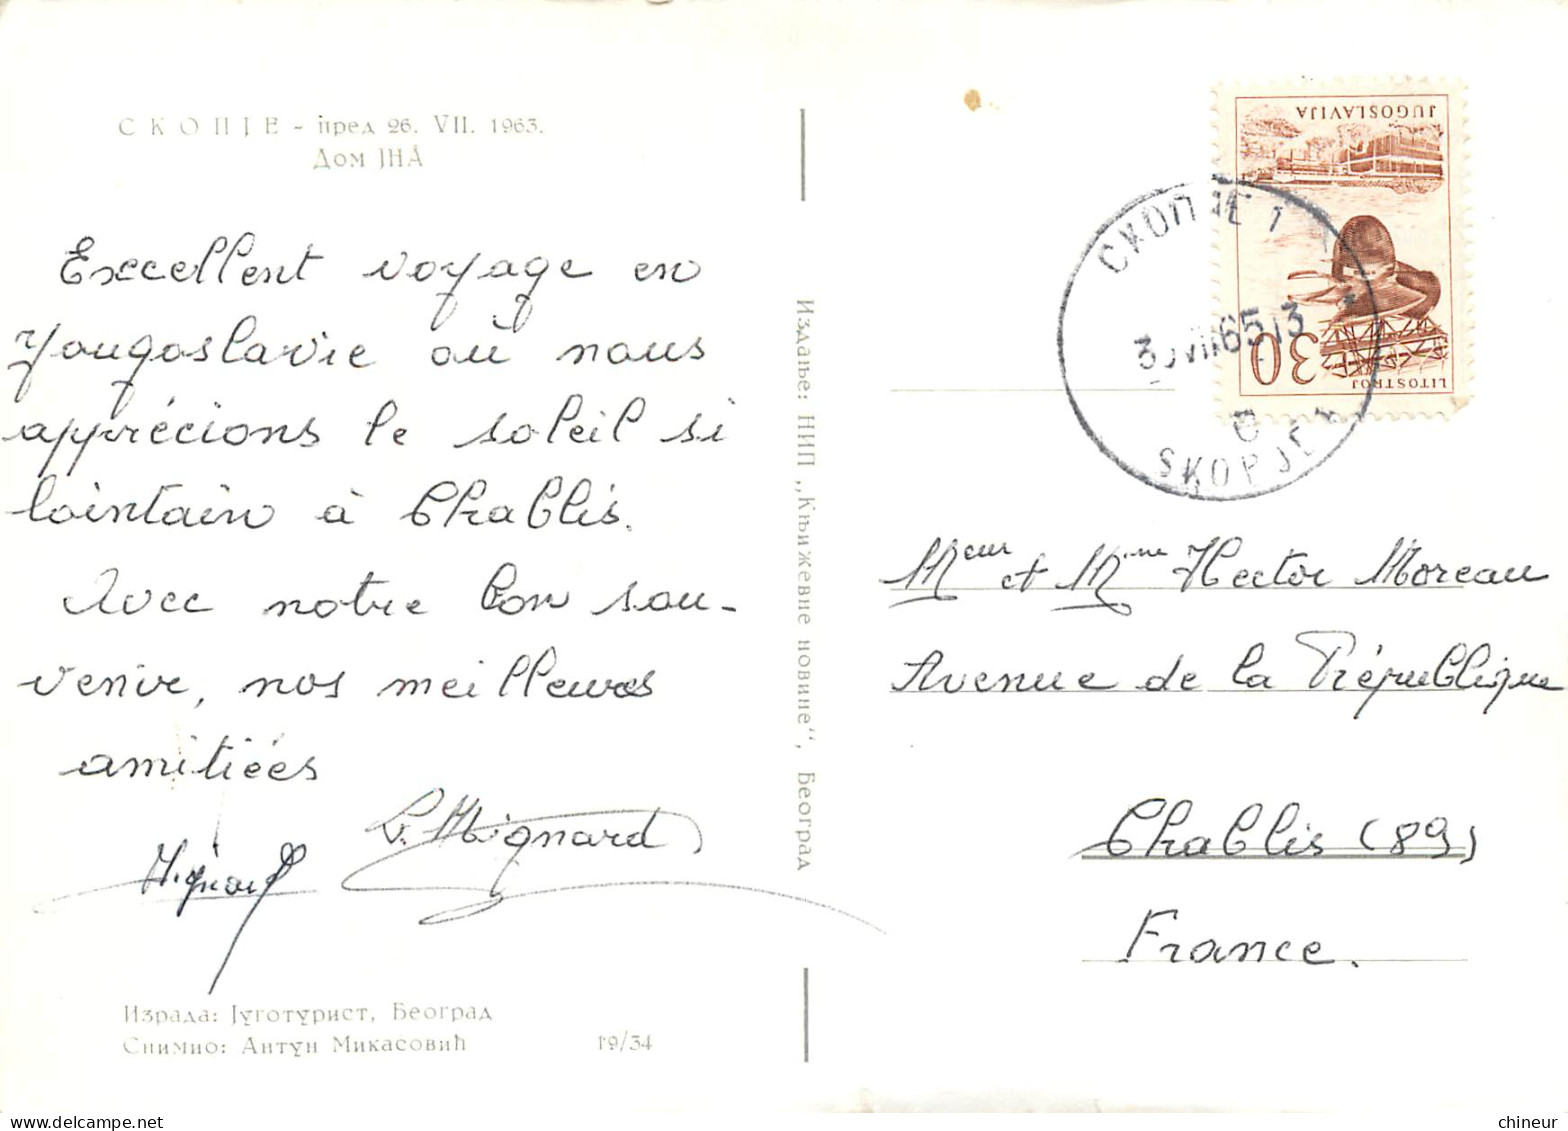 СКОПЈЕ - пред 26. VII. 1963.
Дом ЈНА
Excellent voyage en
Yougoslavie où nous
apprécions le soleil si
lointain à Chablis.
Avec notre bon sou-
venir, nos meilleures
amitiées
Mignard
Израда: Југотурист, Београд
Снимио: Антун Микасовић 19/34
Издање: НИП „Књижевне новине“, Београд
JUGOSLAVIJA
30
LITOSTROJ
СКОПЈЕ 1
VII 65 13
SKOPJE
Meur et Mme Hector Moreau
Avenue de la République
Chablis (89)
France.
chineur